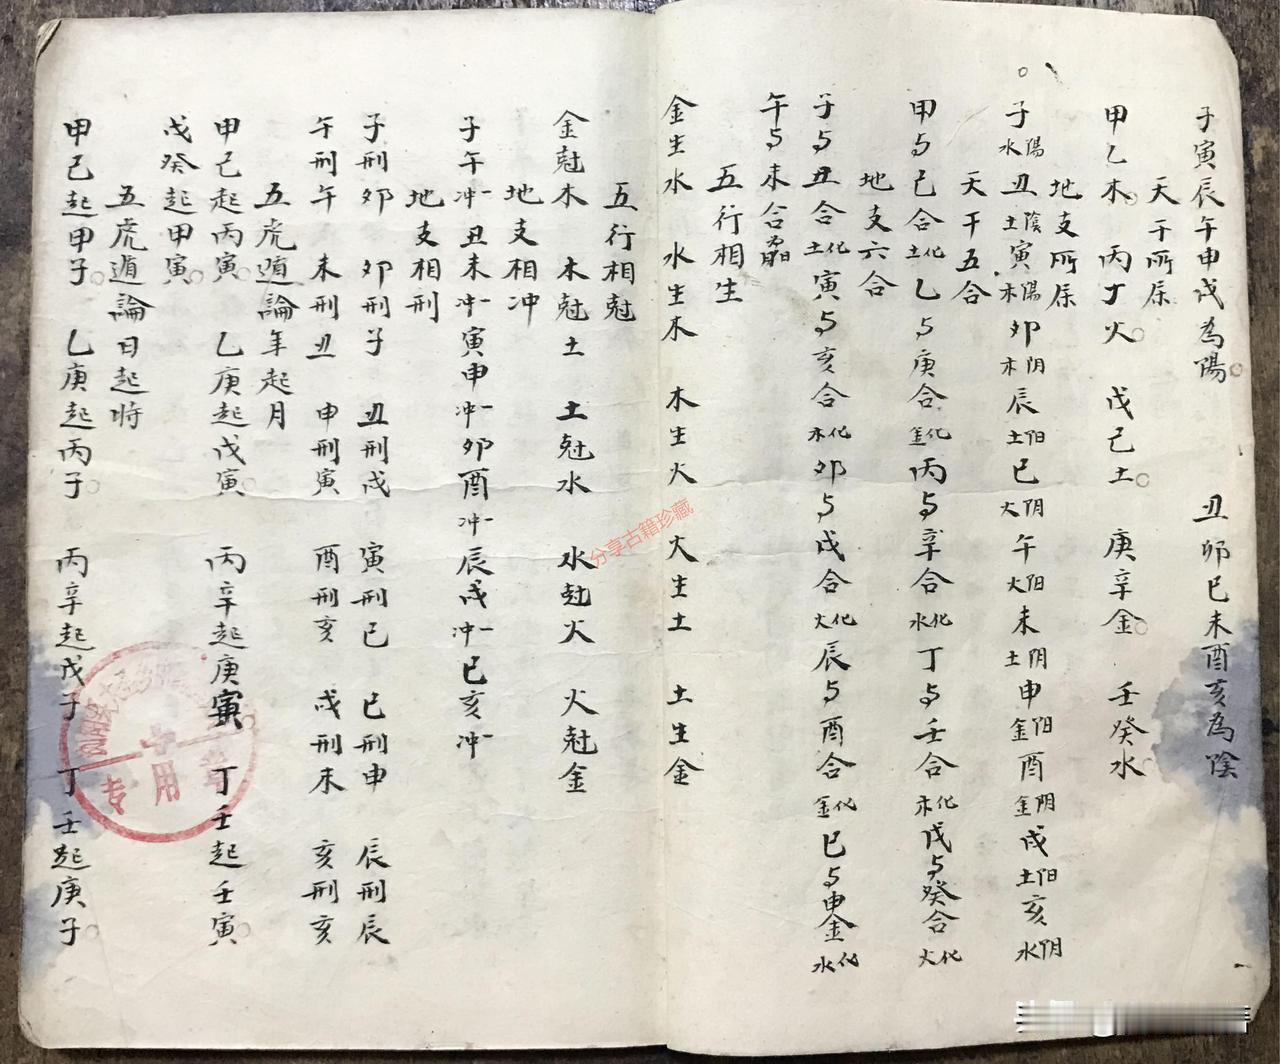 子寅辰午申戌為陽。 丑卯巳未酉亥為陰
天干所屬
甲乙木。丙丁火。戊己土。庚辛金。壬癸水。
地支所屬
子陽水丑陰土寅陽木卯阴木辰阳土巳阴火午阳火未阴土申阳金酉阴金戌阳土亥阴水
天干五合
甲与己合化土乙与庚合化金丙与辛合化水丁与壬合化木戊与癸合化火
地支六合
子与丑合化土寅与亥合化木卯与戌合化火辰与酉合化金巳与申金化水
午与未合
五行相生
金生水 水生木 木生火 火生土 土生金
五行相尅
金尅木 木尅土 土尅水 水尅火 火尅金
地支相冲
子午一冲丑未一冲寅申一冲卯酉一冲辰戌一冲巳亥冲
地支相刑
子刑卯 卯刑子 丑刑戌 寅刑巳 巳刑申 辰刑辰
午刑午 未刑丑 申刑寅 酉刑亥 戌刑未 亥刑亥
五虎遁論年起月
甲己起丙寅。乙庚起戊寅。丙辛起庚寅。丁壬起壬寅。
戊癸起甲寅。
五虎遁論日起時
甲己起甲子。乙庚起丙子。丙辛起戊子 丁壬起庚子。
分享古籍珍藏
专用章